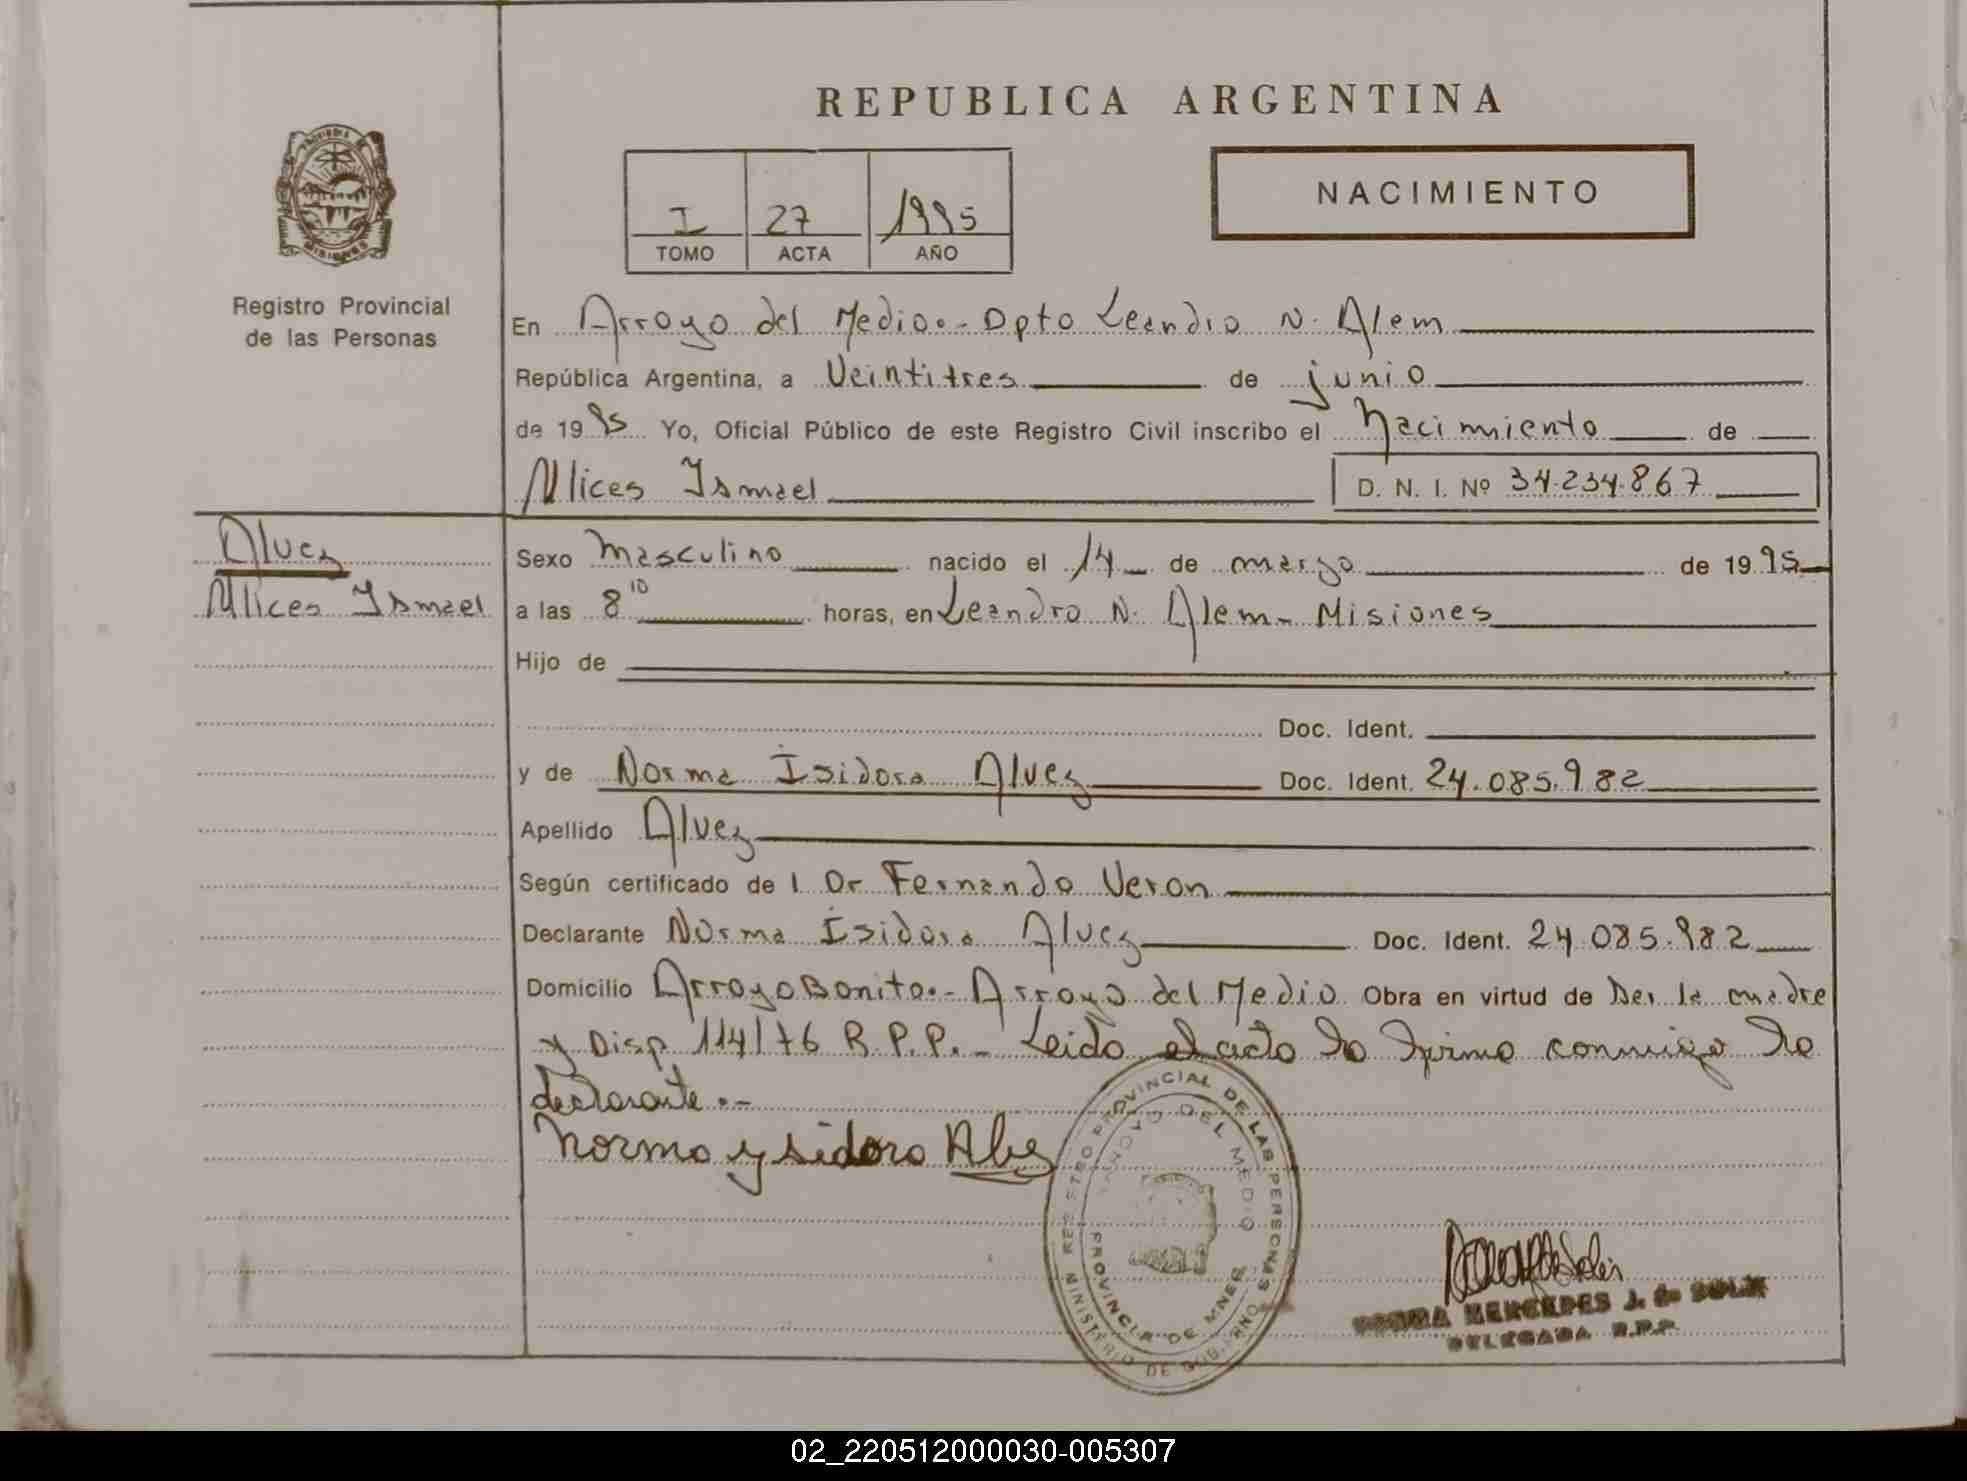 REPUBLICA ARGENTINA
NACIMIENTO
I 27 1995
TOMO ACTA AÑO
Registro Provincial
de las Personas
En Arroyo del Medio.- Dpto Leandro N. Alem
República Argentina, a Veintitres de junio
de 1995 Yo, Oficial Público de este Registro Civil inscribo el Nacimiento de
Ulices Ismael D. N. I. Nº 34.234.867
Alvez
Ulices Ismael
Sexo Masculino nacido el 14 de marzo de 1995
a las 8 10 horas, en Leandro N. Alem - Misiones
Hijo de
Doc. Ident.
y de Norma Isidora Alvez Doc. Ident. 24.085.982
Apellido Alvez
Según certificado de l Dr Fernando Veron
Declarante Norma Isidora Alvez Doc. Ident. 24.085.982
Domicilio Arroyo Bonito.- Arroyo del Medio Obra en virtud de Ser la madre
y Disp 114/76 R.P.P. - Leido el acto la firma conmigo la
declarante.-
Norma ysidora Alvez
REGISTRO PROVINCIAL DE LAS PERSONAS
ARROYO DEL MEDIO
PROVINCIA DE MNES
MINISTERIO DE GOBIERNO
MERCEDES J. de
DELEGADA R.P.P.
02_220512000030-005307